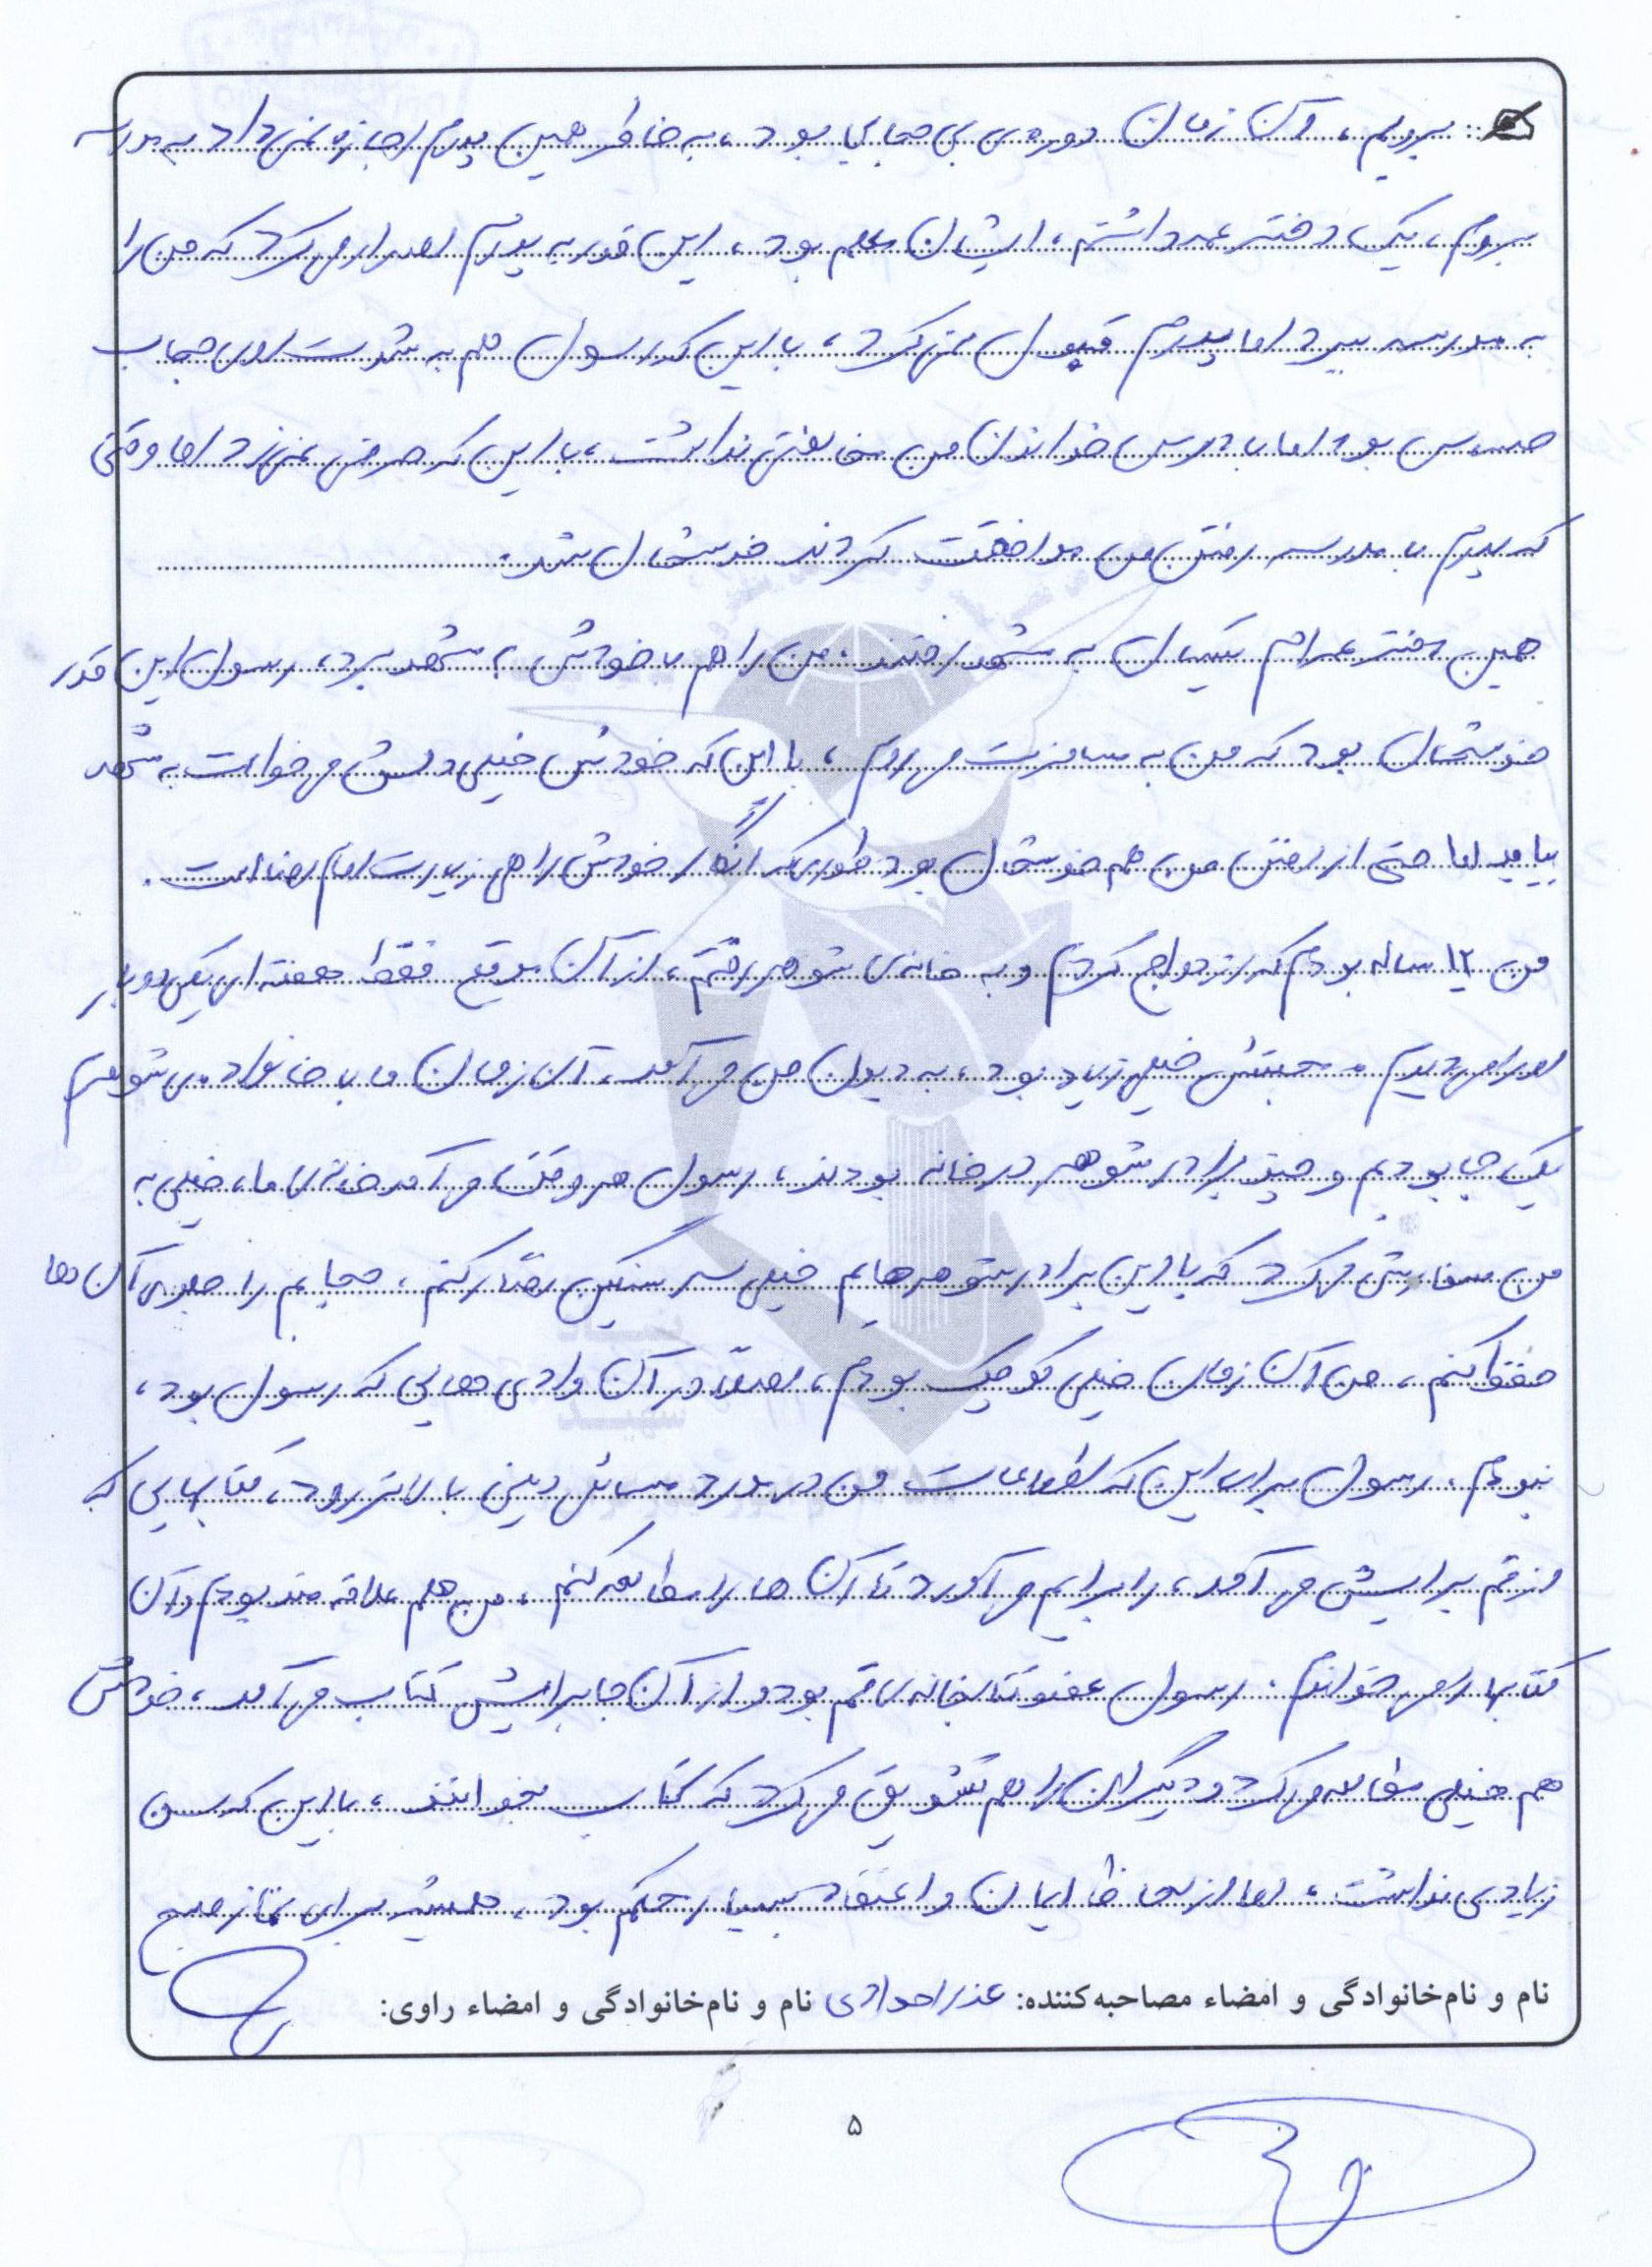 برویم، آن زمان دوره‌ی بی حجابی بود، به خاطر همین پدرم اجازه نمی‌داد به مدرسه
بروم، یک دختر عمو داشتم، ایشان معلم بود، این قدر به پدرم اصرار می‌کرد که من را
به مدرسه ببرد اما پدرم قبول نمی‌کرد، با این که رسول هم به شدت روی حجاب
حساس بود اما با درس خواندن من مخالفتی نداشت، با این که حرفی نمی‌زد اما وقتی
که پدرم با مدرسه رفتن من موافقت کردند خوشحال شد.
همین دختر عموام یکسال به مشهد رفتند، من را هم با خودش به مشهد برد، رسول این قدر
خوشحال بود که من به مسافرت می‌روم، با این که خودش خیلی دلش می‌خواست به مشهد
بیاید اما حتی از رفتن من هم خوشحال بود طوری که انگار خودش راهی زیارت امام رضا است.
من ۱۲ ساله بودم که ازدواج کردم و به خانه‌ی شوهر رفتم، از آن موقع فقط هفته‌ای یکی دو بار
او را می‌دیدم محبتش خیلی زیاد بود، به دیدن من می‌آمد، آن زمان ما با خانواده‌ی شوهرم
یک جا بودیم و چند برادر شوهر در خانه بودند، رسول هر وقت می‌آمد خانه‌ی ما، خیلی به
من سفارش می‌کرد که با این برادر شوهرهایم خیلی سر سنگین رفتار کنم، حجابم را جلوی آن ها
حفظ کنم، من آن زمان خیلی کوچک بودم، اصلاً در آن وادی هایی که رسول بود،
نبودم. رسول برای این که اطلاعات من در مورد مسائل دینی بالاتر رود، کتابهایی که
از قم برایش می‌آمد، را برایم می‌آورد تا آن ها را مطالعه کنم، من هم علاقه مند بودم و آن
کتابها را می‌خواندم. رسول عضو کتابخانه‌ی قم بود و از آن جا برایش کتاب می‌آمد، خودش
هم خیلی مطالعه می‌کرد و دیگران را هم تشویق می‌کرد که کتاب بخوانند، با این که سن
زیادی نداشت، اما از لحاظ ایمان و اعتقاد بسیار محکم بود، همیشه برای نماز صبح
نام و نام‌خانوادگی و امضاء مصاحبه‌کننده: عذرا مرادی نام و نام‌خانوادگی و امضاء راوی:
۵